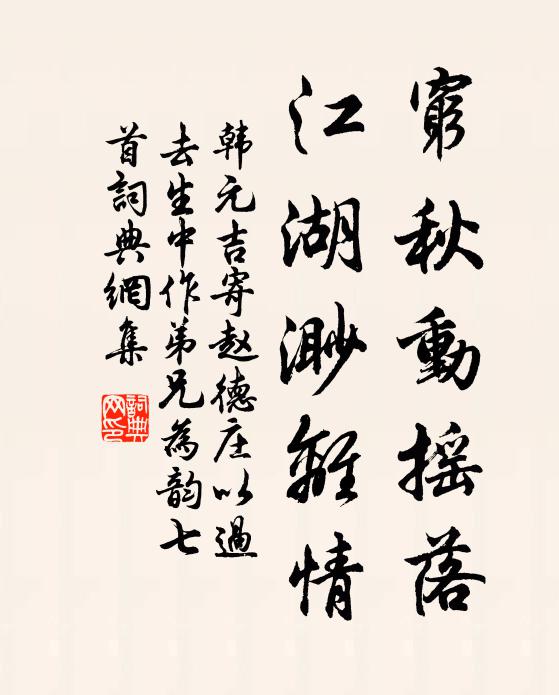 窮秋動摇落
江湖渺離情
韩元吉寄赵德庄以過
去生中作弟兄為韵七
首詞典網集
詞典
网印